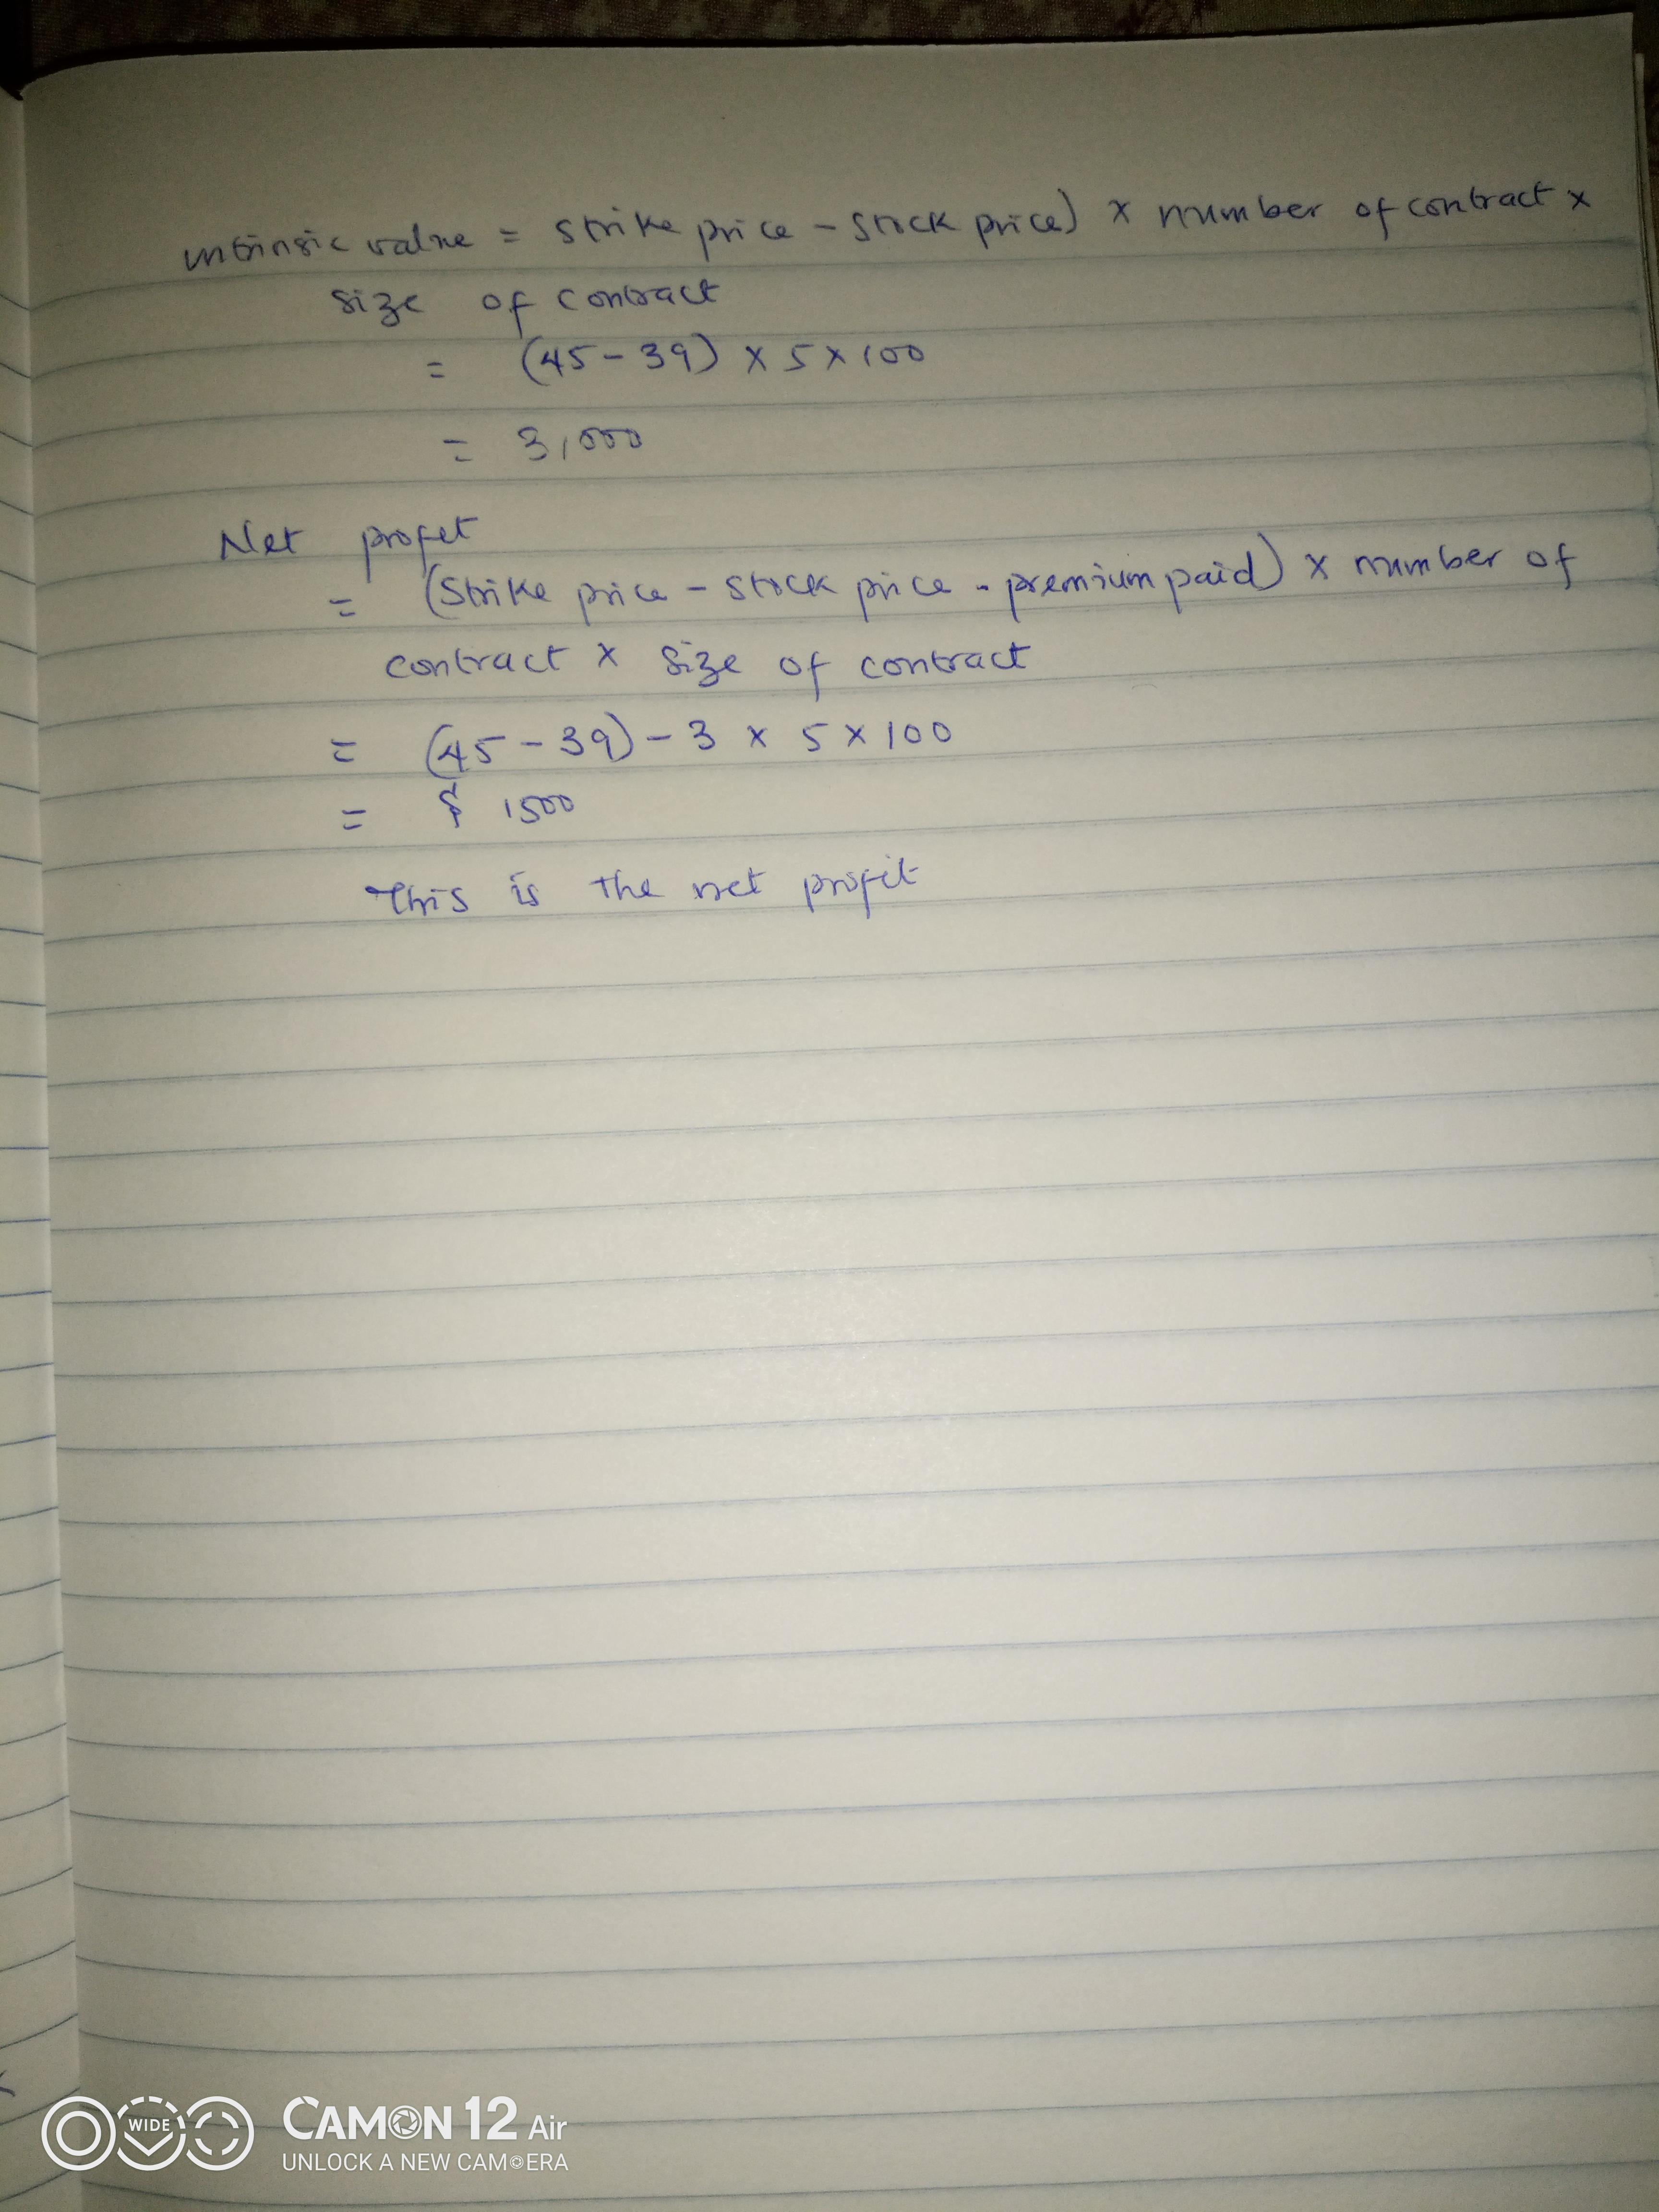 intrinsic value = strike price - stock price) x number of contract x
size of contract
= (45-39) x 5 x 100
= 3,000
Net profit
= (strike price - stock price - premium paid) x number of
contract x size of contract
= (45 - 39) - 3 x 5 x 100
= $ 1500
This is the net profit
WIDE
CAMON 12 Air
UNLOCK A NEW CAMERA